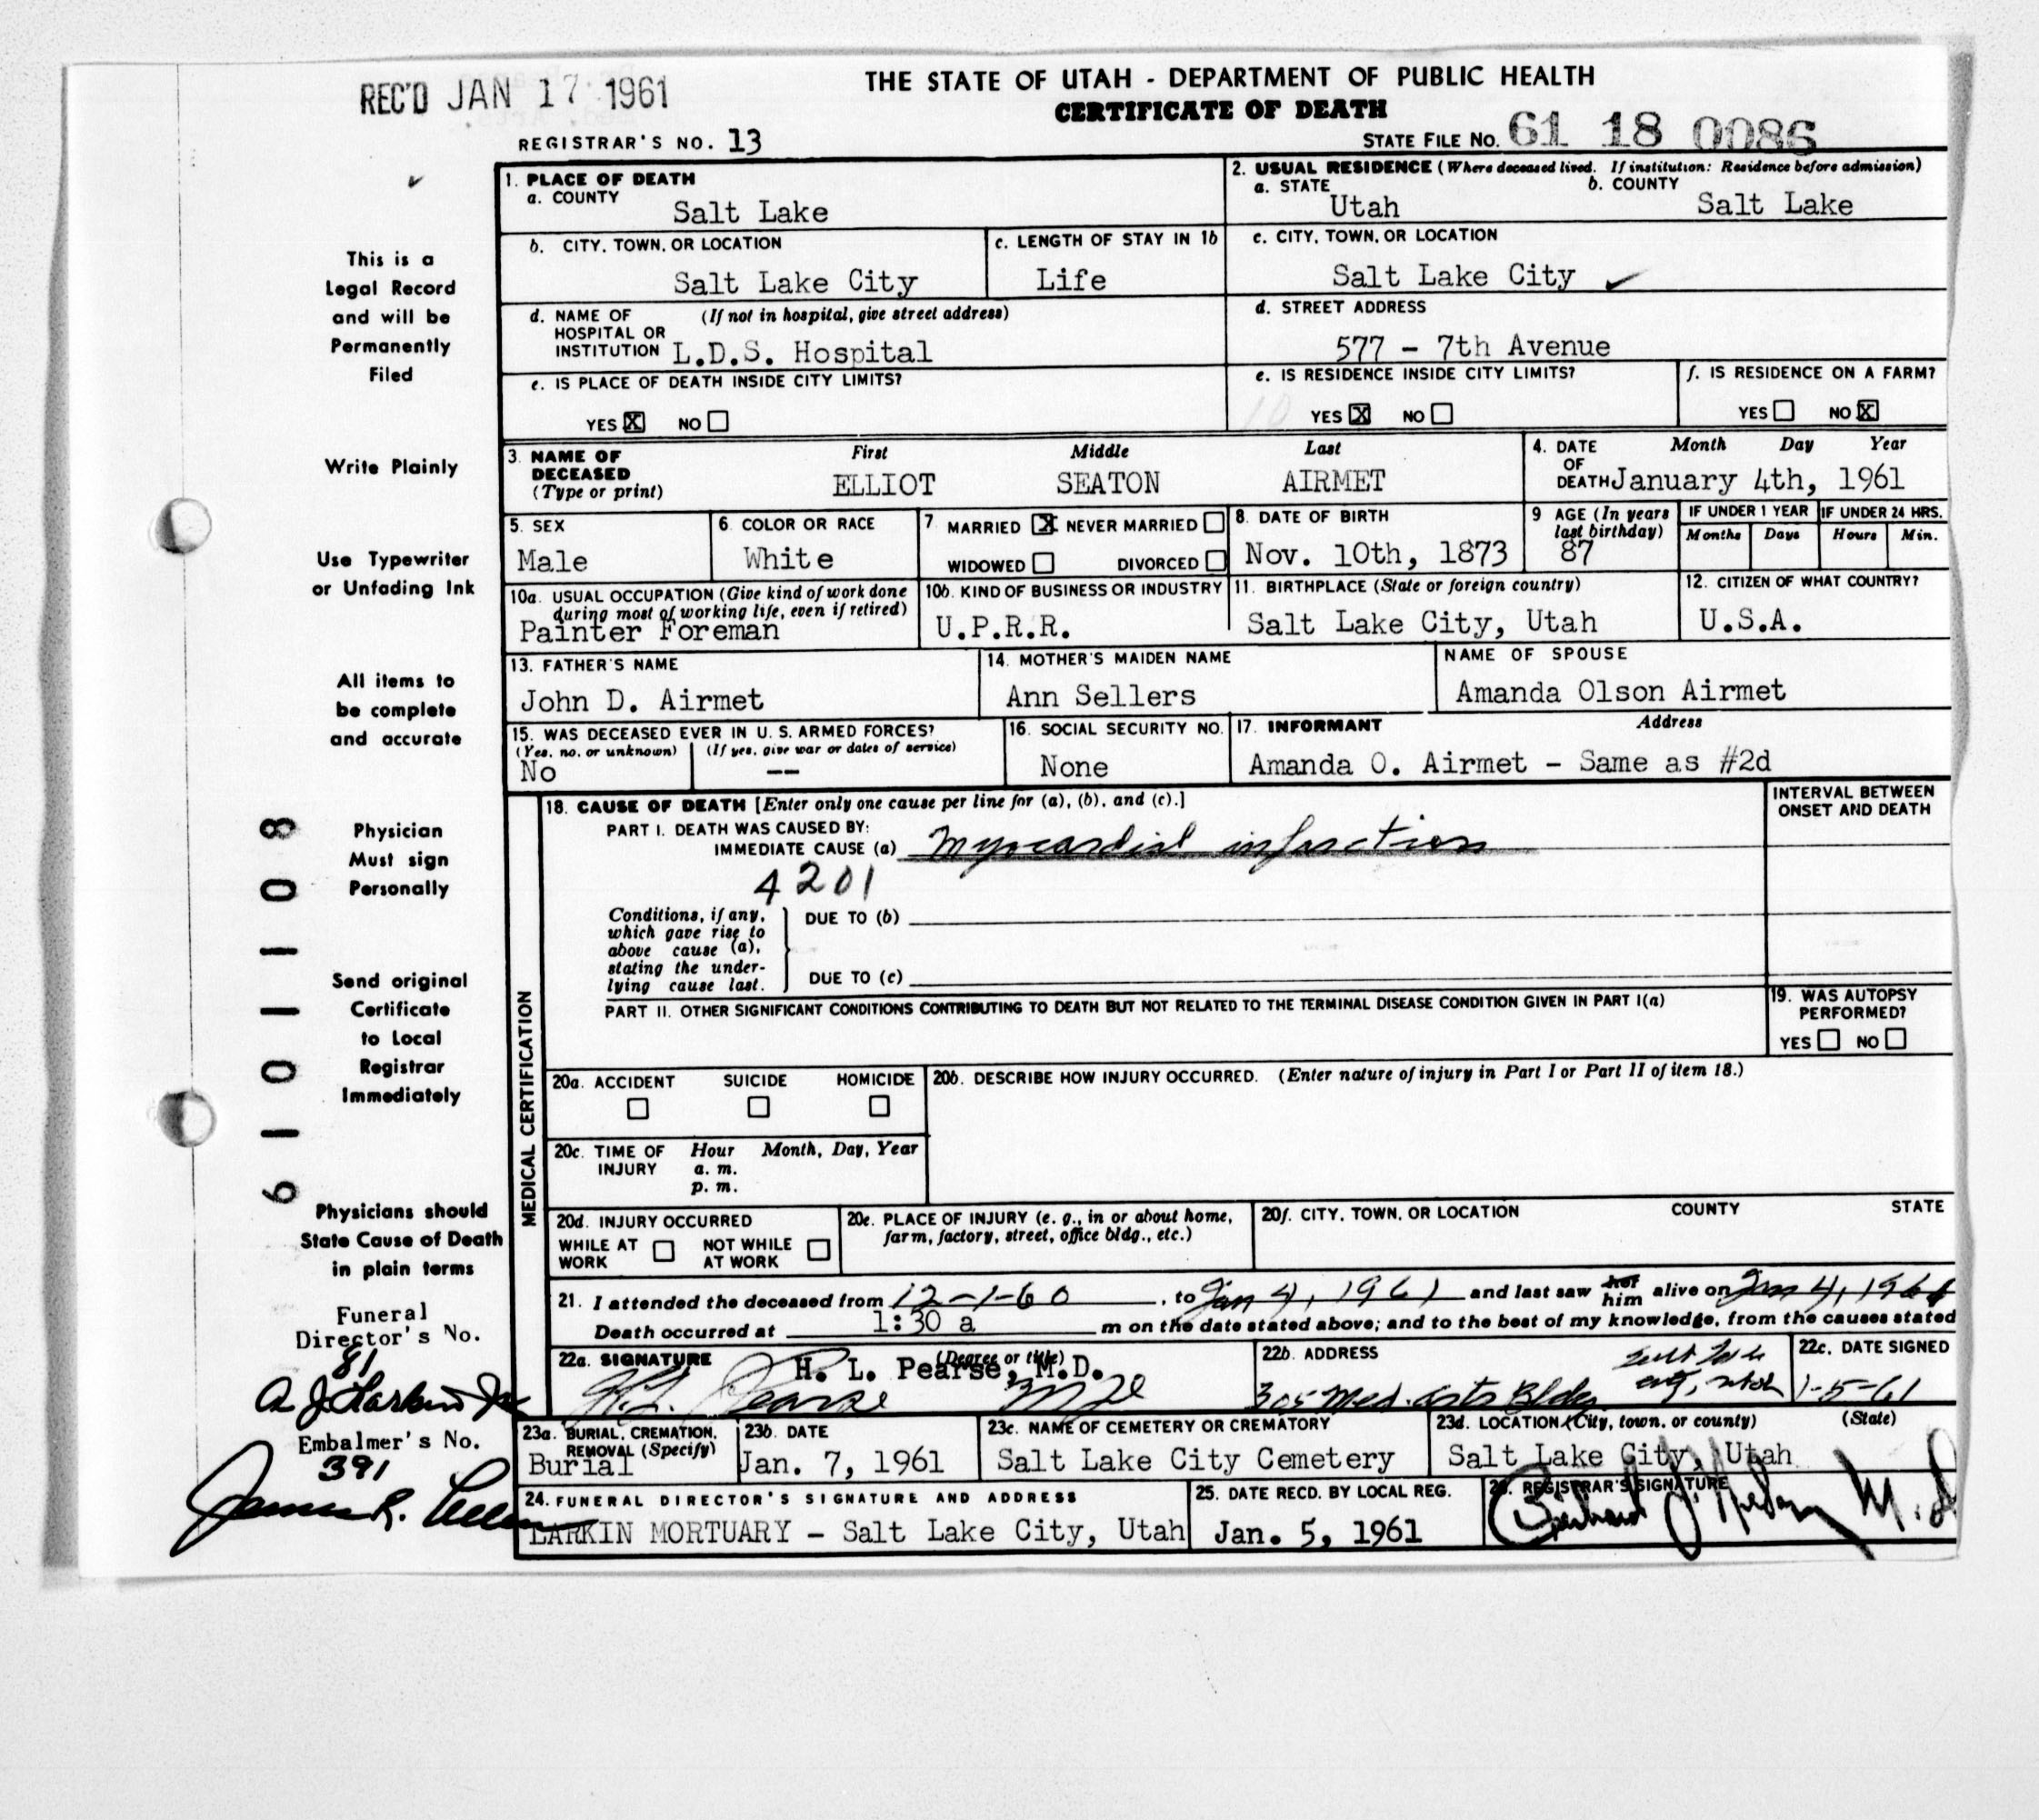 REC'D JAN 17 1961
THE STATE OF UTAH - DEPARTMENT OF PUBLIC HEALTH
CERTIFICATE OF DEATH
REGISTRAR'S NO. 13
STATE FILE NO. 61 18 0086
This is a
Legal Record
and will be
Permanently
Filed
Write Plainly
Use Typewriter
or Unfading Ink
All items to
be complete
and accurate
Physician
Must sign
Personally
Send original
Certificate
to Local
Registrar
Immediately
Physicians should
State Cause of Death
in plain terms
Funeral
Director's No.
81
A J Larkin Jr
Embalmer's No.
391
James R.
6101108
1. PLACE OF DEATH
a. COUNTY
Salt Lake
2. USUAL RESIDENCE (Where deceased lived. If institution: Residence before admission)
a. STATE b. COUNTY
Utah Salt Lake
b. CITY, TOWN, OR LOCATION
Salt Lake City
c. LENGTH OF STAY IN 1b
Life
c. CITY, TOWN, OR LOCATION
Salt Lake City
d. NAME OF (If not in hospital, give street address)
HOSPITAL OR
INSTITUTION L.D.S. Hospital
d. STREET ADDRESS
577 - 7th Avenue
e. IS PLACE OF DEATH INSIDE CITY LIMITS?
YES X NO
e. IS RESIDENCE INSIDE CITY LIMITS?
YES X NO
f. IS RESIDENCE ON A FARM?
YES NO X
3. NAME OF First Middle Last
DECEASED
(Type or print) ELLIOT SEATON AIRMET
4. DATE Month Day Year
OF
DEATH January 4th, 1961
5. SEX
Male
6. COLOR OR RACE
White
7. MARRIED X NEVER MARRIED
WIDOWED DIVORCED
8. DATE OF BIRTH
Nov. 10th, 1873
9 AGE (In years
last birthday)
87
IF UNDER 1 YEAR
Months Days
IF UNDER 24 HRS.
Hours Min.
10a. USUAL OCCUPATION (Give kind of work done
during most of working life, even if retired)
Painter Foreman
10b. KIND OF BUSINESS OR INDUSTRY
U.P.R.R.
11. BIRTHPLACE (State or foreign country)
Salt Lake City, Utah
12. CITIZEN OF WHAT COUNTRY?
U.S.A.
13. FATHER'S NAME
John D. Airmet
14. MOTHER'S MAIDEN NAME
Ann Sellers
NAME OF SPOUSE
Amanda Olson Airmet
15. WAS DECEASED EVER IN U. S. ARMED FORCES?
(Yes, no, or unknown) (If yes, give war or dates of service)
No --
16. SOCIAL SECURITY NO.
None
17. INFORMANT Address
Amanda O. Airmet - Same as #2d
MEDICAL CERTIFICATION
18. CAUSE OF DEATH [Enter only one cause per line for (a), (b), and (c).]
INTERVAL BETWEEN
ONSET AND DEATH
PART I. DEATH WAS CAUSED BY:
IMMEDIATE CAUSE (a) Myocardial infarction
4201
Conditions, if any,
which gave rise to
above cause (a),
stating the under-
lying cause last.
DUE TO (b)
DUE TO (c)
PART II. OTHER SIGNIFICANT CONDITIONS CONTRIBUTING TO DEATH BUT NOT RELATED TO THE TERMINAL DISEASE CONDITION GIVEN IN PART I(a)
19. WAS AUTOPSY
PERFORMED?
YES NO
20a. ACCIDENT SUICIDE HOMICIDE
20b. DESCRIBE HOW INJURY OCCURRED. (Enter nature of injury in Part I or Part II of item 18.)
20c. TIME OF Hour Month, Day, Year
INJURY a. m.
p. m.
20d. INJURY OCCURRED
WHILE AT NOT WHILE
WORK AT WORK
20e. PLACE OF INJURY (e. g., in or about home,
farm, factory, street, office bldg., etc.)
20f. CITY, TOWN, OR LOCATION COUNTY STATE
21. I attended the deceased from 12-1-60, to Jan 4, 1961 and last saw her him alive on Jan 4, 1961
Death occurred at 1:30 a m on the date stated above; and to the best of my knowledge, from the causes stated
22a. SIGNATURE (Degree or title)
H. L. Pearse, M.D.
H.L. Pearse MD
22b. ADDRESS
305 Med. Arts Bldg. Salt Lake
City, Utah
22c. DATE SIGNED
1-5-61
23a. BURIAL, CREMATION,
REMOVAL (Specify)
Burial
23b. DATE
Jan. 7, 1961
23c. NAME OF CEMETERY OR CREMATORY
Salt Lake City Cemetery
23d. LOCATION (City, town, or county) (State)
Salt Lake City, Utah
24. FUNERAL DIRECTOR'S SIGNATURE AND ADDRESS
LARKIN MORTUARY - Salt Lake City, Utah
25. DATE RECD. BY LOCAL REG.
Jan. 5, 1961
26. REGISTRAR'S SIGNATURE
M.D.